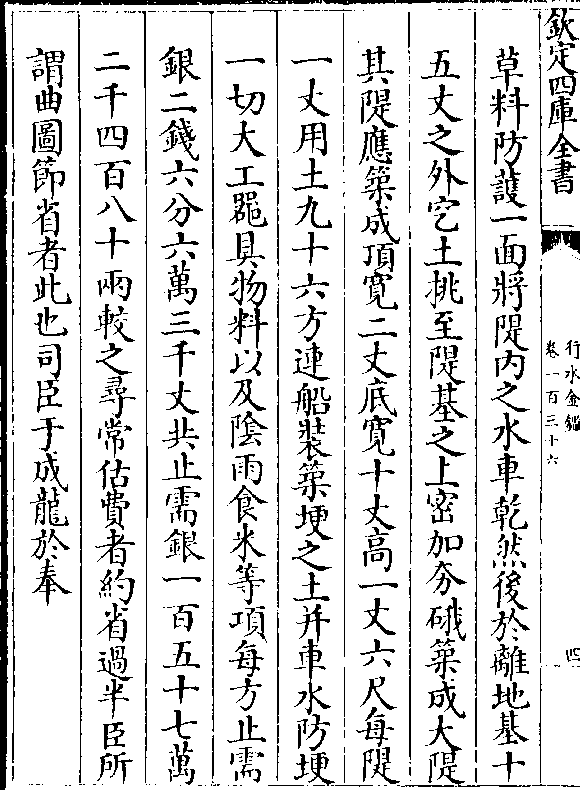 欽定四庫全書
行水金鑑
卷一百三十六
四
草料防護一面將隄内之水車乾然後於離地基十
五丈之外空土挑至隄基之上密加夯硪築成大隄
其隄應築成頂寬二丈底寬十丈高一丈六尺每隄
一丈用土九十六方連船裝築埂之土并車水防埂
一切大工器具物料以及陰雨食米等項每方止需
銀二錢六分六萬三千丈共止需銀一百五十七萬
二千四百八十兩較之尋常估費者約省過半臣所
謂曲圖節省者此也司臣于成龍於奉